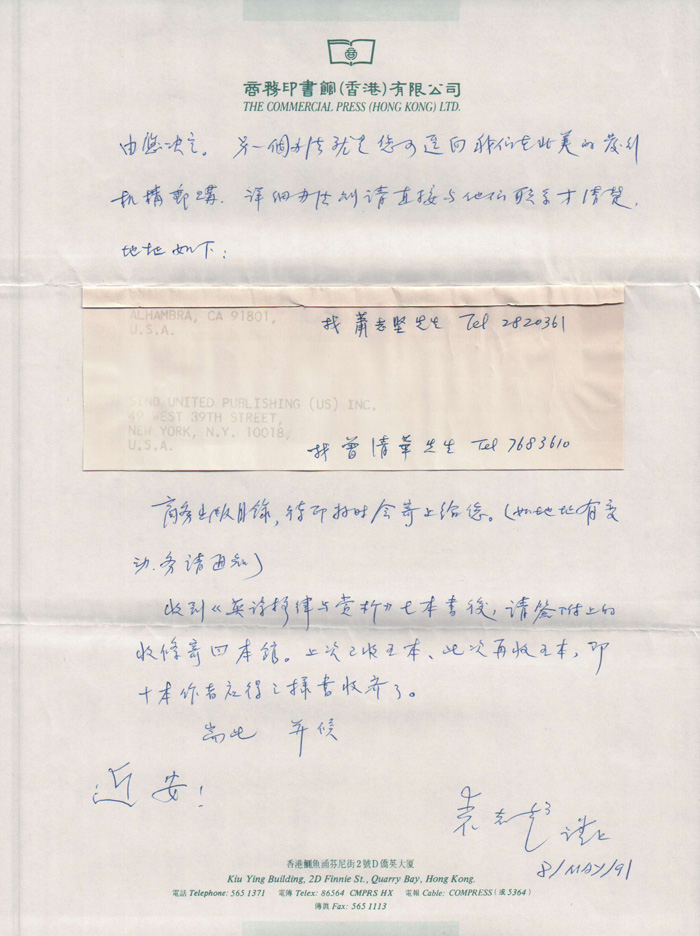 商務印書館(香港)有限公司
THE COMMERCIAL PRESS (HONG KONG) LTD.
由您决定。另一個办法就是您可逕向我们在北美的发行
机構郵購．详细办法则请直接与他们联系才清楚，
地址如下：
ALHAMBRA, CA 91801,
U.S.A.
找 蕭 坚先生 Tel 2820361
SINO UNITED PUBLISHING (US) INC.
49 WEST 39TH STREET,
NEW YORK, N.Y. 10018,
U.S.A.
找 曾清華先生 Tel 7683610
商务出版目錄，待印好时会寄上给您。(如地址有变
动．务请通知)
收到《英诗格律与赏析》七本書後，请签附上的
收條寄回本館。上次已收三本、此次再收七本，即
十本作者应得之樣書收齐了。
耑此 并候
近安！
袁志超 謹上
8/MAY/91
香港鰂魚涌芬尼街2號D僑英大厦
Kiu Ying Building, 2D Finnie St., Quarry Bay, Hong Kong.
電話 Telephone: 565 1371 電傳 Telex: 86564 CMPRS HX 電報 Cable: COMPRESS (或 5364)
傳眞 Fax: 565 1113